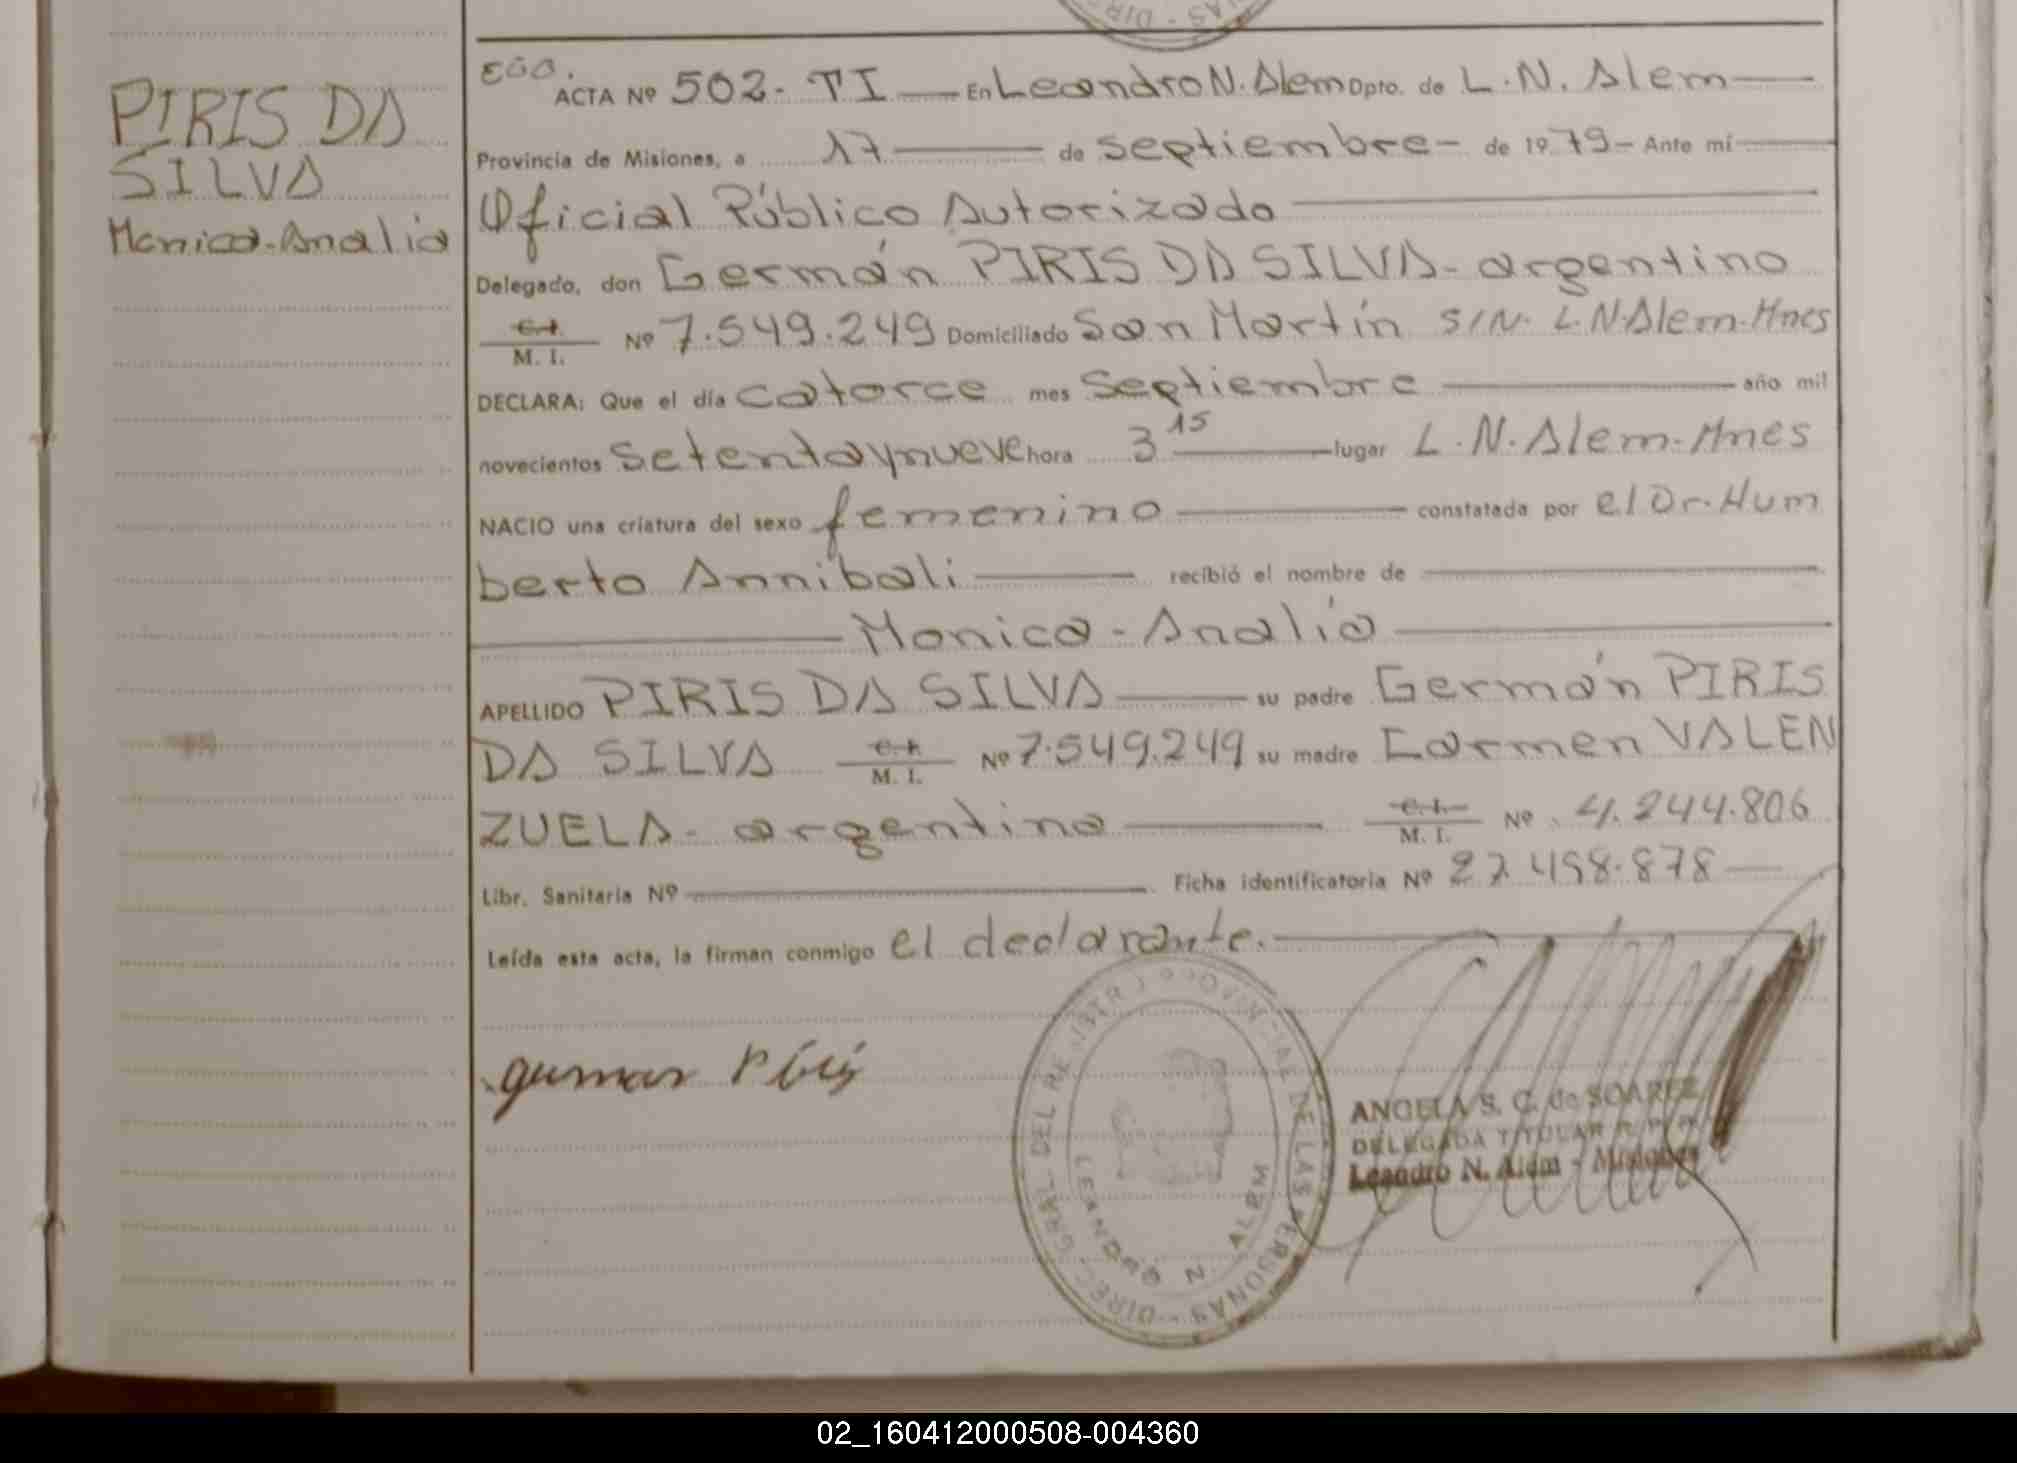 PIRIS DA
SILVA
Monica-Analia
ACTA Nº 502- TI En Leandro N. Alem Dpto. de L. N. Alem
Provincia de Misiones, a 17 de septiembre- de 1979- Ante mí
Oficial Público Autorizado
Delegado, don Germán PIRIS DA SILVA- argentino
C.I. M. I. Nº 7.549.249 Domiciliado San Martín S/N. L.N.Alem-Mnes
DECLARA: Que el día catorce mes Septiembre año mil
novecientos setentaynueve hora 3 15 lugar L.N.Alem-Mnes
NACIO una criatura del sexo femenino constatada por el Dr. Hum
berto Annibali recibió el nombre de
Monica-Analía
APELLIDO PIRIS DA SILVA su padre Germán PIRIS
DA SILVA C.I. M. I. Nº 7.549.249 su madre Carmen VALEN
ZUELA- argentina C.I. M. I. Nº 4.244.806
Libr. Sanitaria Nº Ficha identificatoria Nº 27.498.878
Leída esta acta, la firman conmigo el declarante.
DIREC. GRAL. DEL REGISTRO PROVINCIAL DE LAS PERSONAS
LEANDRO N. ALEM
ANGELA S. C. de SOAREZ
DELEGADA TITULAR R. P. P.
Leandro N. Alem - Misiones
02_160412000508-004360